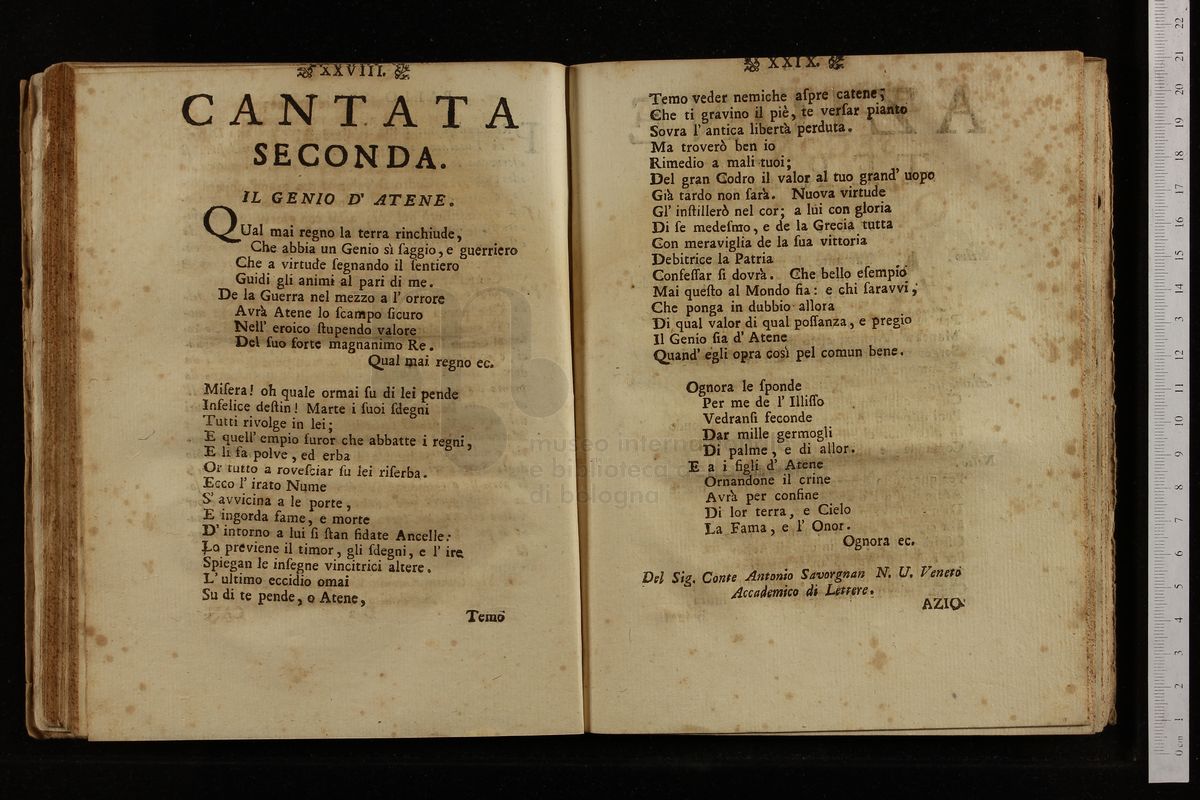 XXVIII.
CANTATA
SECONDA.
IL GENIO D' ATENE.
QUal mai regno la terra rinchiude,
Che abbia un Genio sì ſaggio, e guerriero
Che a virtude ſegnando il ſentiero
Guidi gli animi al pari di me.
De la Guerra nel mezzo a l' orrore
Avrà Atene lo ſcampo ſicuro
Nell' eroico ſtupendo valore
Del ſuo forte magnanimo Re.
Qual mai regno ec.
Miſera! oh quale ormai ſu di lei pende
Infelice deſtin! Marte i ſuoi ſdegni
Tutti rivolge in lei;
E quell' empio furor che abbatte i regni,
E li fa polve, ed erba
Or tutto a roveſciar ſu lei riſerba.
Ecco l' irato Nume
S' avvicina a le porte,
E ingorda fame, e morte
D' intorno a lui ſi ſtan fidate Ancelle:
Lo previene il timor, gli ſdegni, e l' ire
Spiegan le inſegne vincitrici altere.
L' ultimo eccidio omai
Su di te pende, o Atene,
Temo
XXIX.
Temo veder nemiche aſpre catene;
Che ti gravino il piè, te verſar pianto
Sovra l' antica libertà perduta.
Ma troverò ben io
Rimedio a mali tuoi;
Del gran Codro il valor al tuo grand' uopo
Già tardo non ſarà. Nuova virtude
Gl' inſtillerò nel cor; a lui con gloria
Di ſe medeſmo, e de la Grecia tutta
Con meraviglia de la ſua vittoria
Debitrice la Patria
Confeſſar ſi dovrà. Che bello eſempio
Mai queſto al Mondo fia: e chi ſaravvi,
Che ponga in dubbio allora
Di qual valor di qual poſſanza, e pregio
Il Genio ſia d' Atene
Quand' egli opra così pel comun bene.
Ognora le ſponde
Per me de l' Illiſſo
Vedranſi feconde
Dar mille germogli
Di palme, e di allor.
E a i figli d' Atene
Ornandone il crine
Avrà per confine
Di lor terra, e Cielo
La Fama, e l' Onor.
Ognora ec.
Del Sig. Conte Antonio Savorgnan N. U. Veneto
Accademico di Lettere.
AZIO
museo interna
e biblioteca d
di bologna